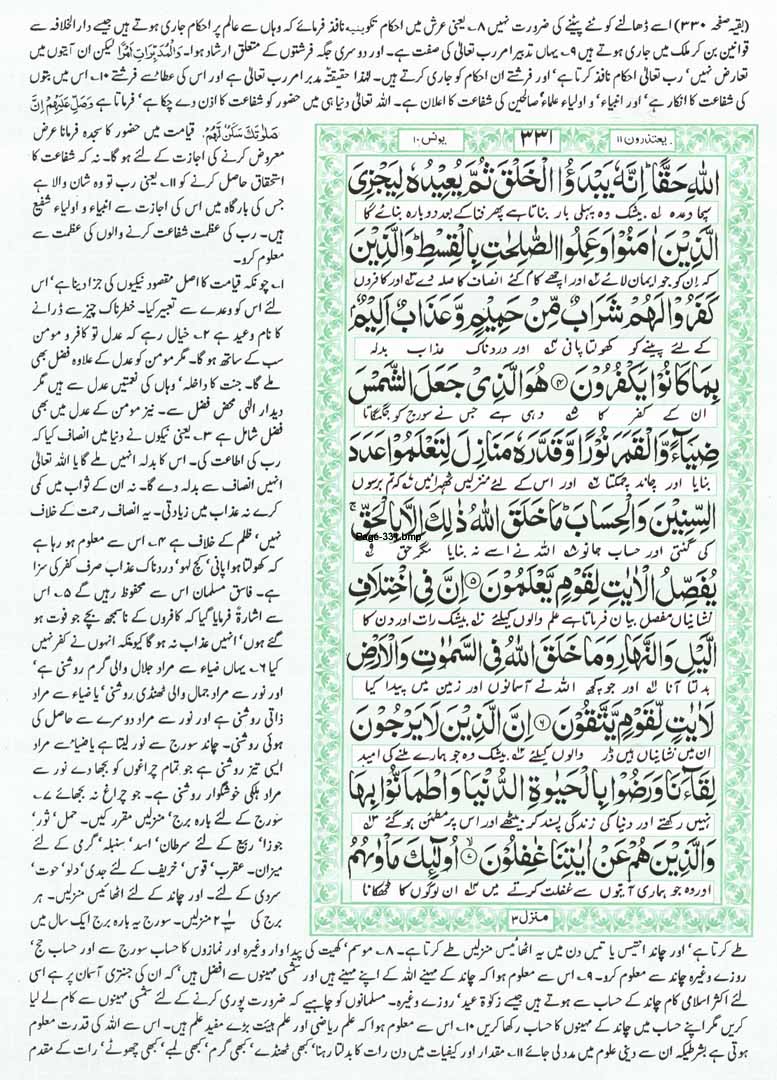 (بقیہ صفحہ ۳۳۰) اسے ڈھالنے کو نئے پیٹنے کی ضرورت نہیں ۸؎ یعنی عرش میں احکام تکوینیہ نافذ فرمائے کہ وہاں سے عالم پر احکام جاری ہوتے ہیں جیسے دار الخلافہ سے
قوانین بن کر ملک میں جاری ہوتے ہیں ۹؎ یہاں تدبیر امر رب تعالیٰ کی صفت ہے۔ اور دوسری جگہ فرشتوں کے متعلق ارشاد ہوا۔ فَالْمُدَبِّرَاتِ اَمْرًا لیکن ان آیتوں میں
تعارض نہیں' رب تعالیٰ احکام نافذ کرتا ہے' اور فرشتے ان احکام کو جاری کرتے ہیں۔ لہٰذا حقیقتہً مدبر امر رب تعالیٰ ہی ہے اور اس کی عطا سے فرشتے ۱۰؎ اس میں بتوں
کی شفاعت کا انکار ہے' اور انبیاء' و اولیاء علماء' صالحین کی شفاعت کا اعلان ہے۔ اللہ تعالیٰ دنیا ہی میں حضور کو شفاعت کا اذن دے چکا ہے' فرماتا ہے وَصَلِّ عَلَيْهِمْ اِنَّ
یعتذرون ۱۱
۳۳۱
یونس ۱۰
اللّٰهِ حَقًّا ؕ اِنَّهٗ یَبْدَؤُا الْخَلْقَ ثُمَّ یُعِیْدُهٗ لِیَجْزِیَ
سچا وعدہ بیشک وہ پہلی بار بناتا ہے پھر فنا کے بعد دوبارہ بنائے گا
الَّذِیْنَ اٰمَنُوْا وَعَمِلُوا الصّٰلِحٰتِ بِالْقِسْطِ ؕ وَالَّذِیْنَ
کہ ان کو جو ایمان لائے اور اچھے کام کئے انصاف کا صلہ دے اور کافروں
كَفَرُوْا لَهُمْ شَرَابٌ مِّنْ حَمِیْمٍ وَّعَذَابٌ اَلِیْمٌۢ
کے لئے پینے کو کھولتا پانی اور دردناک عذاب بدلہ
بِمَا كَانُوْا یَكْفُرُوْنَ ۴ هُوَ الَّذِیْ جَعَلَ الشَّمْسَ
ان کے کفر کا وہی ہے جس نے سورج کو جگمگاتا
ضِیَآءً وَّالْقَمَرَ نُوْرًا وَّقَدَّرَهٗ مَنَازِلَ لِتَعْلَمُوْا عَدَدَ
بنایا اور چاند چمکتا اور اس کے لئے منزلیں ٹھہرائیں کہ تم برسوں
السِّنِیْنَ وَالْحِسَابَ ؕ مَا خَلَقَ اللّٰهُ ذٰلِكَ اِلَّا بِالْحَقِّ ۚ
Page-331.bmp
کی گنتی اور حساب جانو اللہ نے اسے نہ بنایا مگر حق
یُفَصِّلُ الْاٰیٰتِ لِقَوْمٍ یَّعْلَمُوْنَ ۵ اِنَّ فِی اخْتِلَافِ
نشانیاں مفصل بیان فرماتا ہے علم والوں کیلئے بیشک رات اور دن کا
الَّیْلِ وَالنَّهَارِ وَمَا خَلَقَ اللّٰهُ فِی السَّمٰوٰتِ وَالْاَرْضِ
بدلتا آنا اور جو کچھ اللہ نے آسمانوں اور زمین میں پیدا کیا
لَاٰیٰتٍ لِّقَوْمٍ یَّتَّقُوْنَ ۶ اِنَّ الَّذِیْنَ لَا یَرْجُوْنَ
ان میں نشانیاں ہیں ڈر والوں کیلئے بیشک وہ جو ہمارے ملنے کی امید
لِقَآءَنَا وَرَضُوْا بِالْحَیٰوةِ الدُّنْیَا وَاطْمَاَنُّوْا بِهَا
نہیں رکھتے اور دنیا کی زندگی پسند کر بیٹھے اور اس پر مطمئن ہو گئے
وَالَّذِیْنَ هُمْ عَنْ اٰیٰتِنَا غٰفِلُوْنَ ۷ اُولٰٓئِكَ مَاْوٰىهُمُ
اور وہ جو ہماری آیتوں سے غفلت کرتے ہیں ان لوگوں کا ٹھکانا
منزل ۳
صَلٰوتَكَ سَكَنٌ لَّهُمْ۔ قیامت میں حضور کا سجدہ فرمانا عرض
معروض کرنے کی اجازت کے لئے ہو گا۔ نہ کہ شفاعت کا
استحقاق حاصل کرنے کو ۱۱؎ یعنی رب تو وہ شان والا ہے
جس کی بارگاہ میں اس کی اجازت سے انبیاء و اولیاء شفیع
ہیں۔ رب کی عظمت شفاعت کرنے والوں کی عظمت سے
معلوم کرو۔
۱؎ چونکہ قیامت کا اصل مقصود نیکیوں کی جزا دینا ہے' اس
لئے اس کو وعدے سے تعبیر کیا۔ خطرناک چیز سے ڈرانے
کا نام وعید ہے ۲؎ خیال رہے کہ عدل تو کافر و مومن
سب کے ساتھ ہو گا۔ مگر مومن کو عدل کے علاوہ فضل بھی
ملے گا۔ جنت کا داخلہ' وہاں کی نعمتیں عدل سے ہیں مگر
دیدار الٰہی محض فضل سے۔ نیز مومن کے عدل میں بھی
فضل شامل ہے ۳؎ یعنی نیکوں نے دنیا میں انصاف کیا کہ
رب کی اطاعت کی۔ اس کا بدلہ انہیں ملے گا یا اللہ تعالیٰ
انہیں انصاف سے بدلہ دے گا۔ نہ ان کے ثواب میں کمی
کرے نہ عذاب میں زیادتی۔ یہ انصاف رحمت کے خلاف
نہیں' ظلم کے خلاف ہے ۴؎ اس سے معلوم ہو رہا ہے
کہ کھولتا ہوا پانی' کچ لہو' دردناک عذاب صرف کفر کی سزا
ہے۔ فاسق مسلمان اس سے محفوظ رہیں گے ۵؎ اس
سے اشارۃً فرمایا گیا کہ کافروں کے ناسمجھ بچے جو فوت ہو
گئے ہوں' انہیں عذاب نہ ہو گا کیونکہ انہوں نے کفر نہیں
کیا ۶؎ یہاں ضیاء سے مراد جلال والی گرم روشنی ہے'
اور نور سے مراد جمال والی ٹھنڈی روشنی' یا ضیاء سے مراد
ذاتی روشنی ہے اور نور سے مراد دوسرے سے حاصل کی
ہوئی روشنی۔ چاند سورج سے نور لیتا ہے یا ضیاء سے مراد
ایسی تیز روشنی ہے جو تمام چراغوں کو بجھا دے نور سے
مراد ہلکی خوشگوار روشنی ہے۔ جو چراغ نہ بجھائے ۷؎
سورج کے لئے بارہ برج' منزلیں مقرر کیں۔ حمل' ثور'
جوزا' ربیع کے لئے سرطان' اسد' سنبلہ' گرمی کے لئے
میزان۔ عقرب' قوس' خریف کے لئے جدی' دلو' حوت'
سردی کے لئے۔ اور چاند کے لئے اٹھائیس منزلیں۔ ہر
برج کی ۲ منزلیں۔ سورج یہ بارہ برج ایک سال میں
طے کرتا ہے' اور چاند انتیس یا تیس دن میں یہ اٹھائیس منزلیں طے کرتا ہے۔ ۸؎ موسم' کھیت کی پیداوار وغیرہ اور نمازوں کا حساب سورج سے اور حساب حج'
روزے وغیرہ چاند سے معلوم کرو۔ ۹؎ اس سے معلوم ہوا کہ چاند کے مہینے اللہ کے اپنے مہینے ہیں اور شمسی مہینوں سے افضل ہیں' کہ ان کی جنتری آسمان پر ہے اسی
لئے اکثر اسلامی کام چاند کے حساب سے ہوتے ہیں جیسے زکوٰۃ عید' روزے وغیرہ۔ مسلمانوں کو چاہیے کہ ضرورت پوری کرنے کے لئے شمسی مہینوں سے کام لے لیا
کریں مگر اپنے حساب میں چاند کے مہینوں کا حساب رکھا کریں ۱۰؎ اس سے معلوم ہوا کہ علم ریاضی اور علم ہیئت بڑے مفید علم ہیں۔ اس سے اللہ کی قدرت معلوم
ہوتی ہے بشرطیکہ ان سے دینی علوم میں مدد لی جائے ۱۱؎ مقدار اور کیفیات میں دن رات کا بدلتا رہنا' کبھی ٹھنڈے' کبھی گرم' کبھی لمبے' کبھی چھوٹے' رات کے مقدم